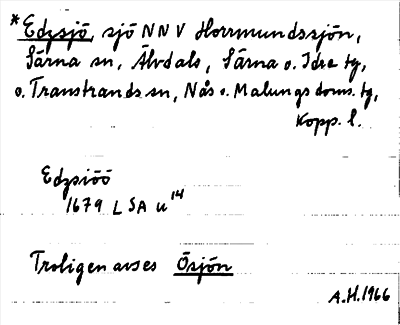 *Edzsjö, sjö NNV Horrmundssjön,
Särna sn, Älvdals, Särna o. Idre tg,
o. Transtrands sn, Nås o. Malungs doms. tg,
Kopp. l.
Edzsiöö
1679 LSA U 14
Troligen avses Ösjön
A.H. 1966